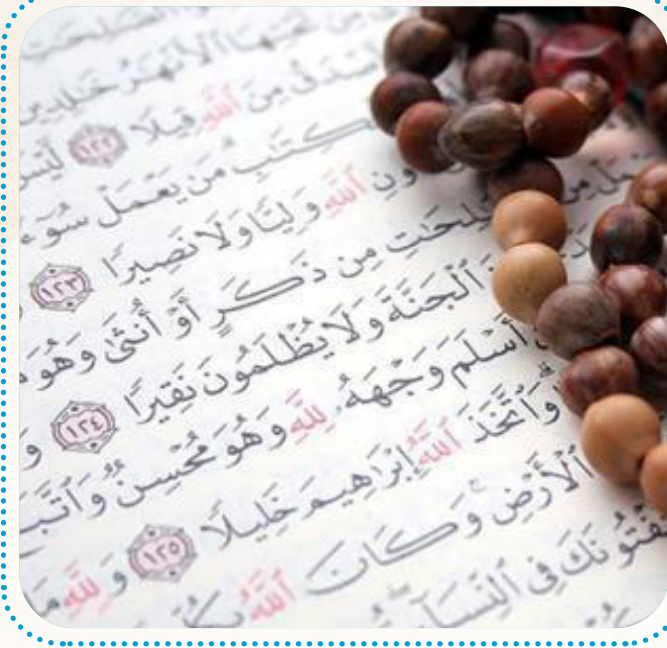 ٱلصَّٰلِحَٰتِ
تَحْتِهَا ٱلْأَنْهَٰرُ خَٰلِدِينَ
أَصْدَقُ مِنَ ٱللَّهِ قِيلًا ١٢٢ لَّيْسَ
ٱلْكِتَٰبِ مَن يَعْمَلْ سُوٓءًا
دُونِ ٱللَّهِ وَلِيًّا وَلَا نَصِيرًا ١٢٣
ٱلصَّٰلِحَٰتِ مِن ذَكَرٍ أَوْ أُنثَىٰ وَهُوَ
ٱلْجَنَّةَ وَلَا يُظْلَمُونَ نَقِيرًا ١٢٤ وَ
أَسْلَمَ وَجْهَهُۥ لِلَّهِ وَهُوَ مُحْسِنٌ وَٱتَّبَعَ
وَٱتَّخَذَ ٱللَّهُ إِبْرَٰهِيمَ خَلِيلًا ١٢٥ وَلِلَّهِ مَا
ٱلْأَرْضِ وَكَانَ ٱللَّهُ بِكُلِّ
فِى ٱلنِّسَآءِ